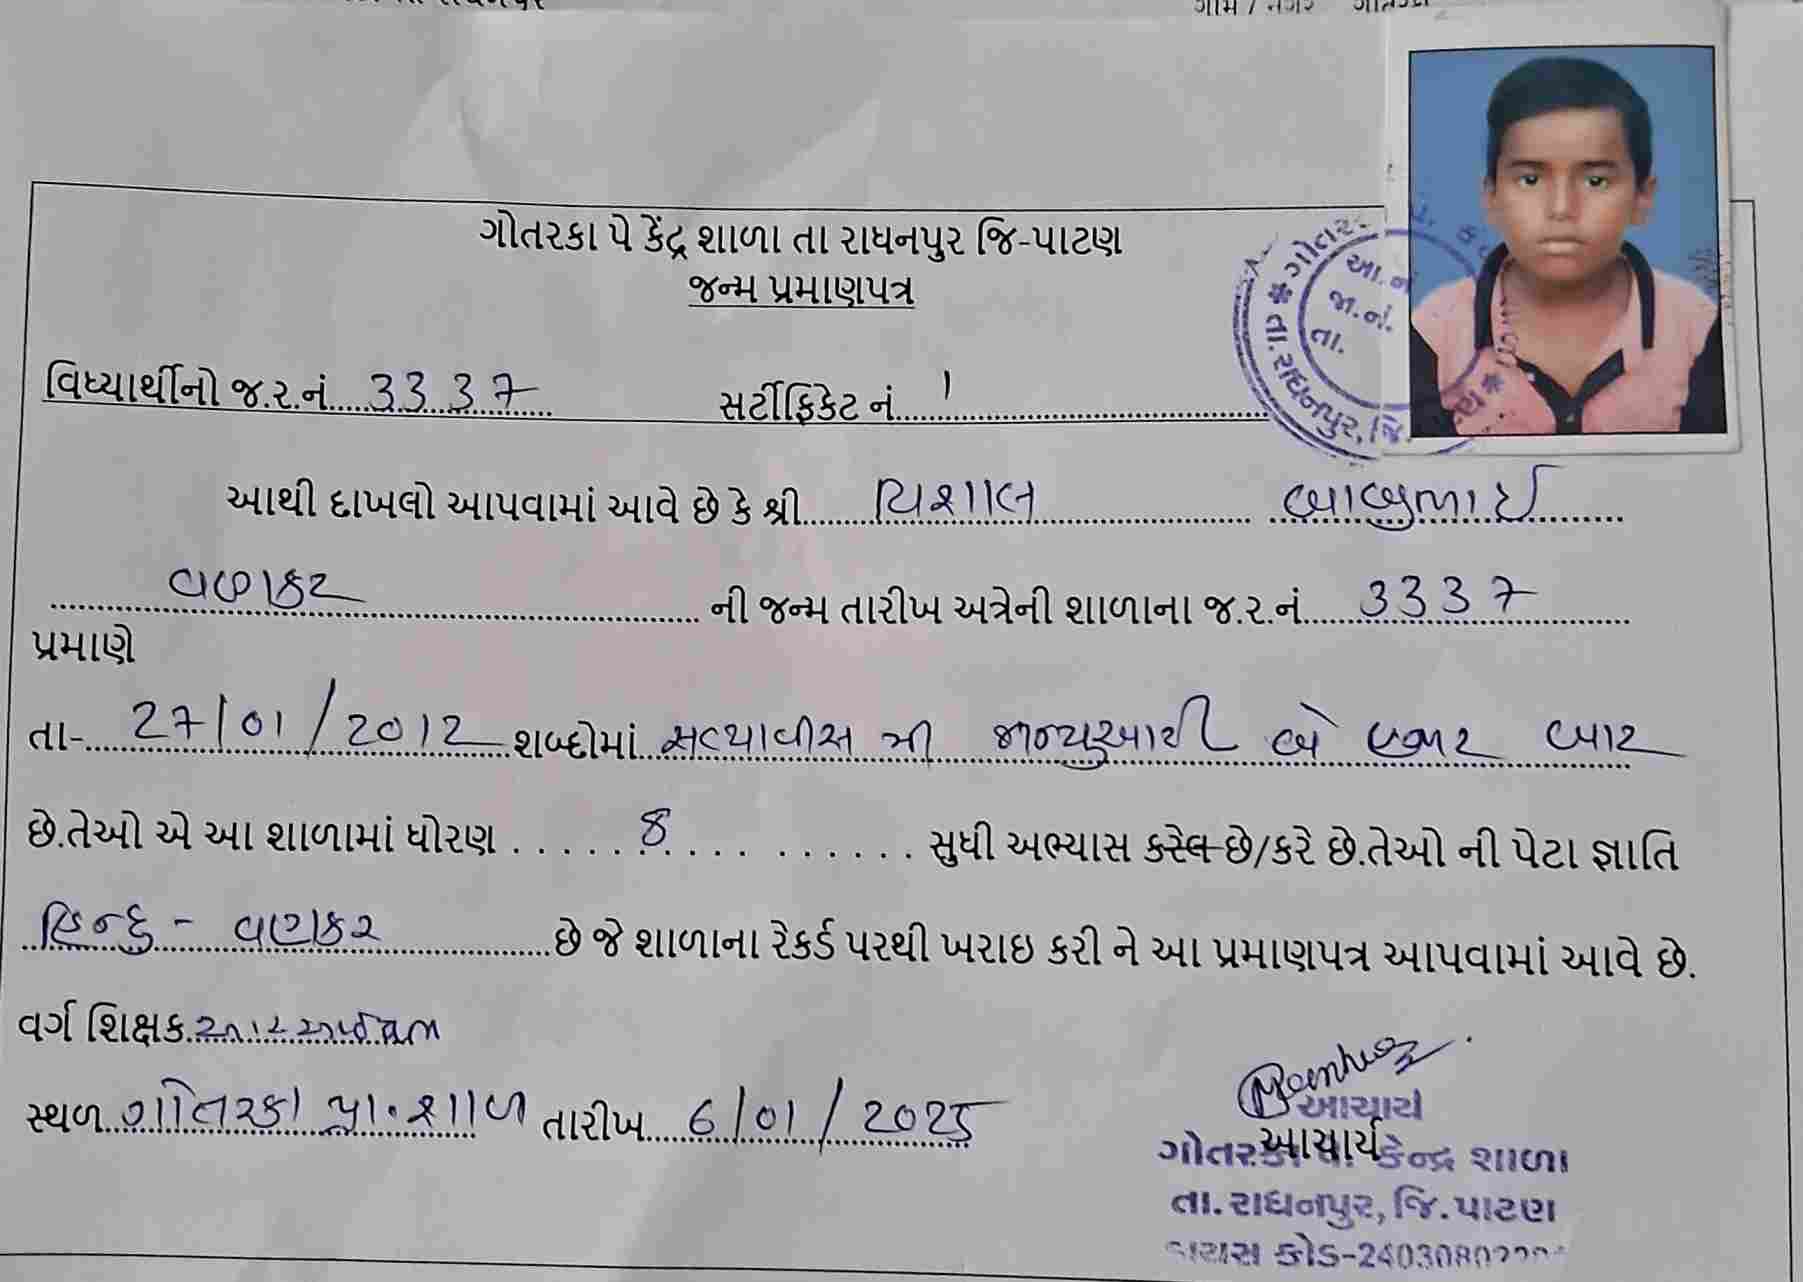 ગોતરકા પે કેંદ્ર શાળા તા રાધનપુર જિ-પાટણ
જન્મ પ્રમાણપત્ર
વિધ્યાર્થીનો જ.ર.નં.....3337..... સર્ટીફિકેટ નં.....1.....
આથી દાખલો આપવામાં આવે છે કે શ્રી..... વિશાલ ..... બાબુભાઈ
વણકર ..... ની જન્મ તારીખ અત્રેની શાળાના જ.ર.નં.....3337.....
પ્રમાણે
તા-..27/01/2012..શબ્દોમાં સત્યાવીસ મી જાન્યુઆરી બે હજાર બાર
છે.તેઓ એ આ શાળામાં ધોરણ ......8.......... સુધી અભ્યાસ કરેલ છે/કરે છે.તેઓ ની પેટા જ્ઞાતિ
હિન્દુ - વણકર.....છે જે શાળાના રેકર્ડ પરથી ખરાઇ કરી ને આ પ્રમાણપત્ર આપવામાં આવે છે.
વર્ગ શિક્ષક
સ્થળ..ગોતરકા પ્રા.શાળા તારીખ....6/01/2025
આચાર્ય
આચાર્ય
ગોતરકા કેન્દ્ર શાળા
તા.રાધનપુર, જિ.પાટણ
ડાયસ કોડ-24030802
ગોતર
આ.નં
જા.નં.
તા.
તા.રાધનપુર, જિ.